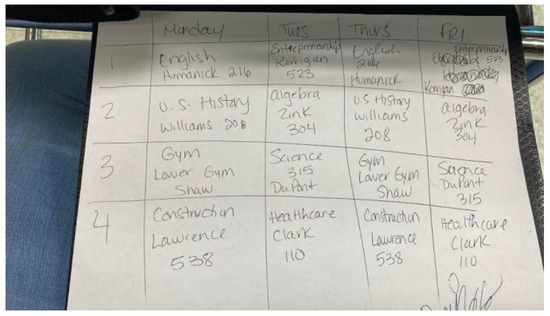 Monday Tues Thurs FRI
1
English
Humanick 216
Entrepreneurship
Kerrigan
523
English
216
Humanick
Entrepreneurship
523
2
U.S. History
Williams 208
algebra
Zink
304
U.S History
Williams
208
algebra
Zink
304
3
Gym
Lower Gym
Shaw
Science
315
DuPont
Gym
Lower Gym
Shaw
Science
DuPont
315
4
Construction
Lawrence
538
Healthcare
Clark
110
Construction
Lawrence
538
Healthcare
Clark
110